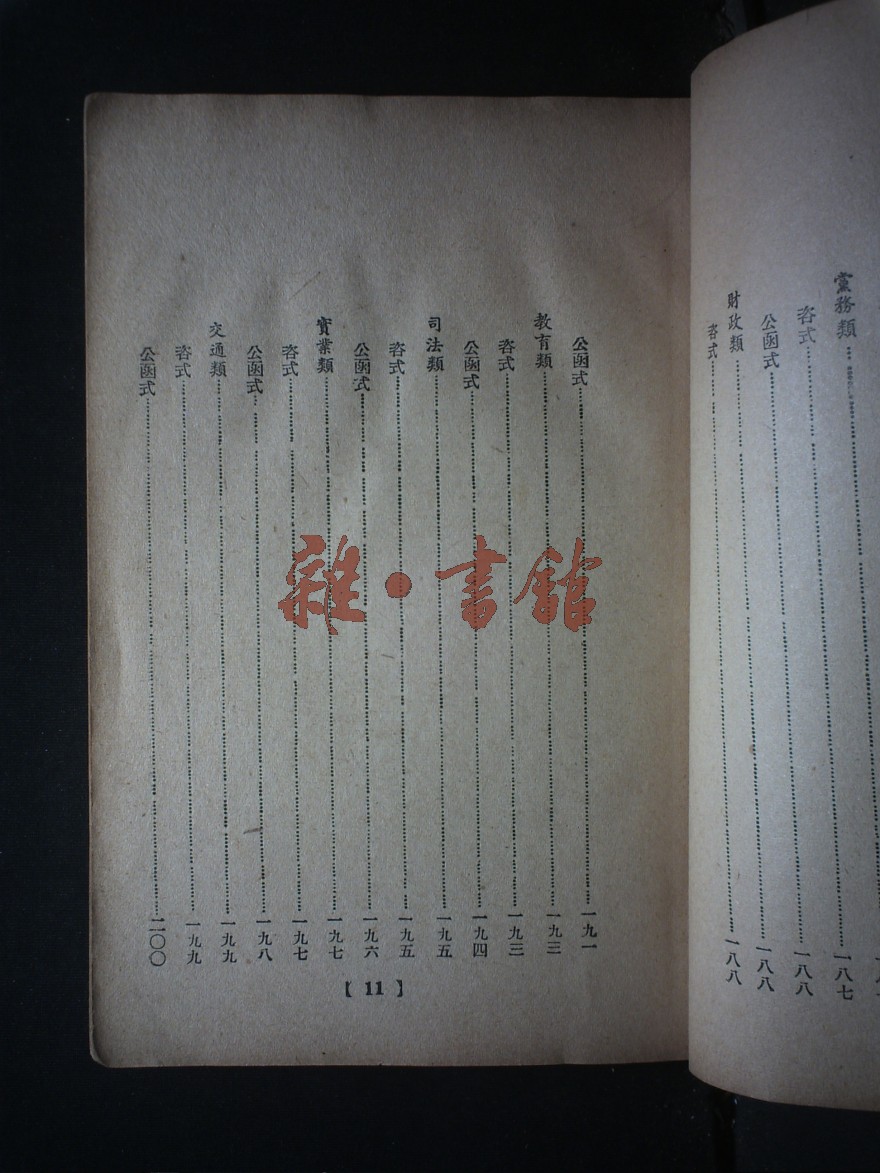 黨務類……一八七
咨式……一八八
公函式……一八八
財政類……一八八
咨式……
公函式……一九一
教育類……一九三
咨式……一九三
公函式……一九四
司法類……一九五
咨式……一九五
公函式……一九六
實業類……一九七
咨式……一九七
公函式……一九八
交通類……一九九
咨式……一九九
公函式……二〇〇
【11】
雜·書館